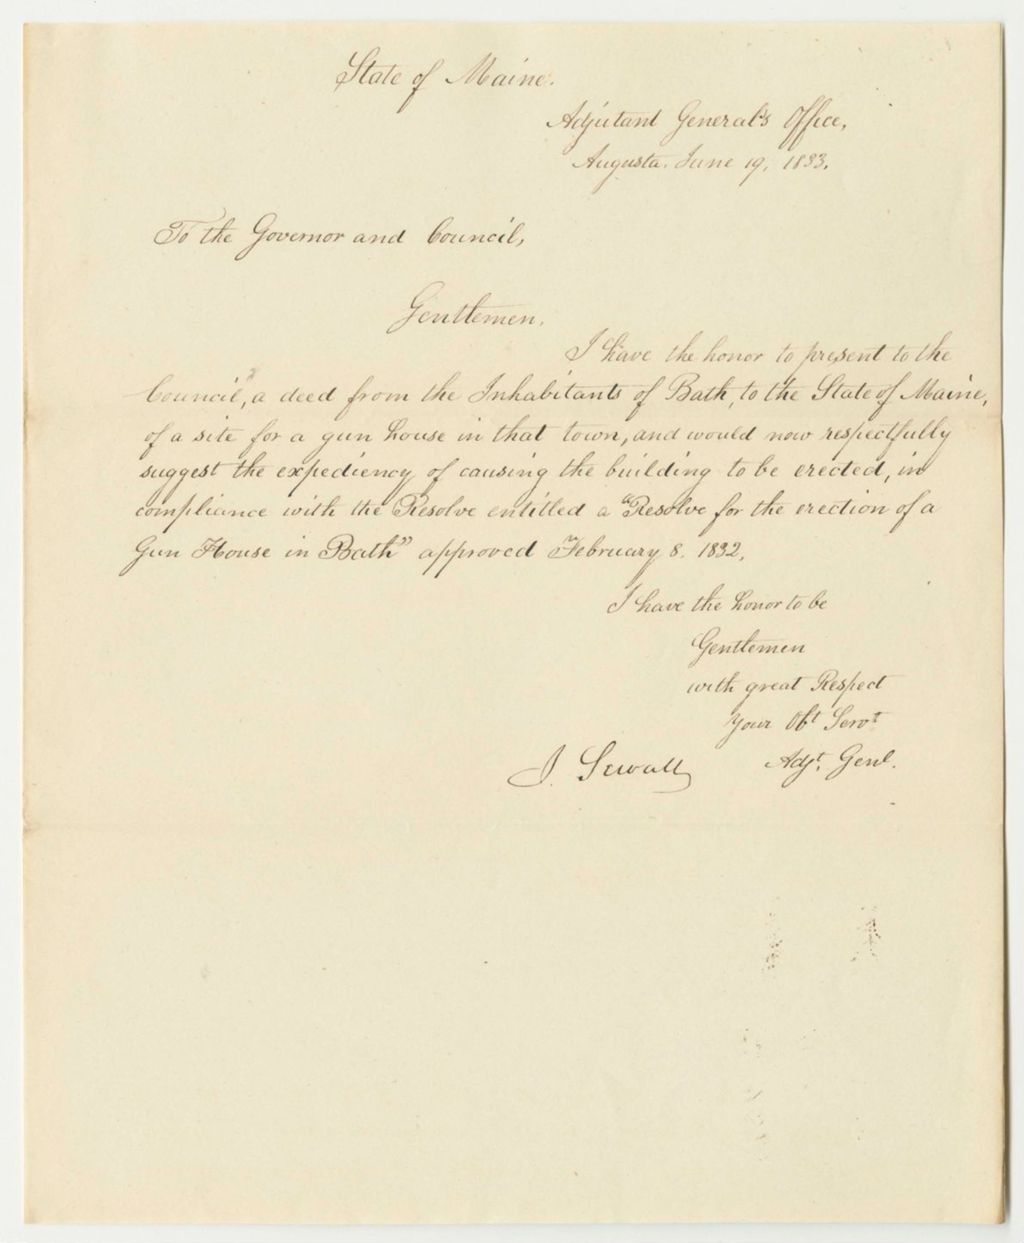 State of Maine.
Adjutant General's Office,
Augusta. June 19. 1833.
To the Governor and Council,
Gentlemen.
I have the honor to present to the
Council, a deed from the Inhabitants of Bath, to the State of Maine,
of a site for a gun house in that town, and would now respectfully
suggest the expediency of causing the building to be erected, in
compliance with the Resolve entitled a "Resolve for the erection of a
Gun House in Bath" approved February 8. 1832.
I have the honor to be
Gentlemen
with great Respect
Your Obt Servt
J. Sewall Adjt. Genl.